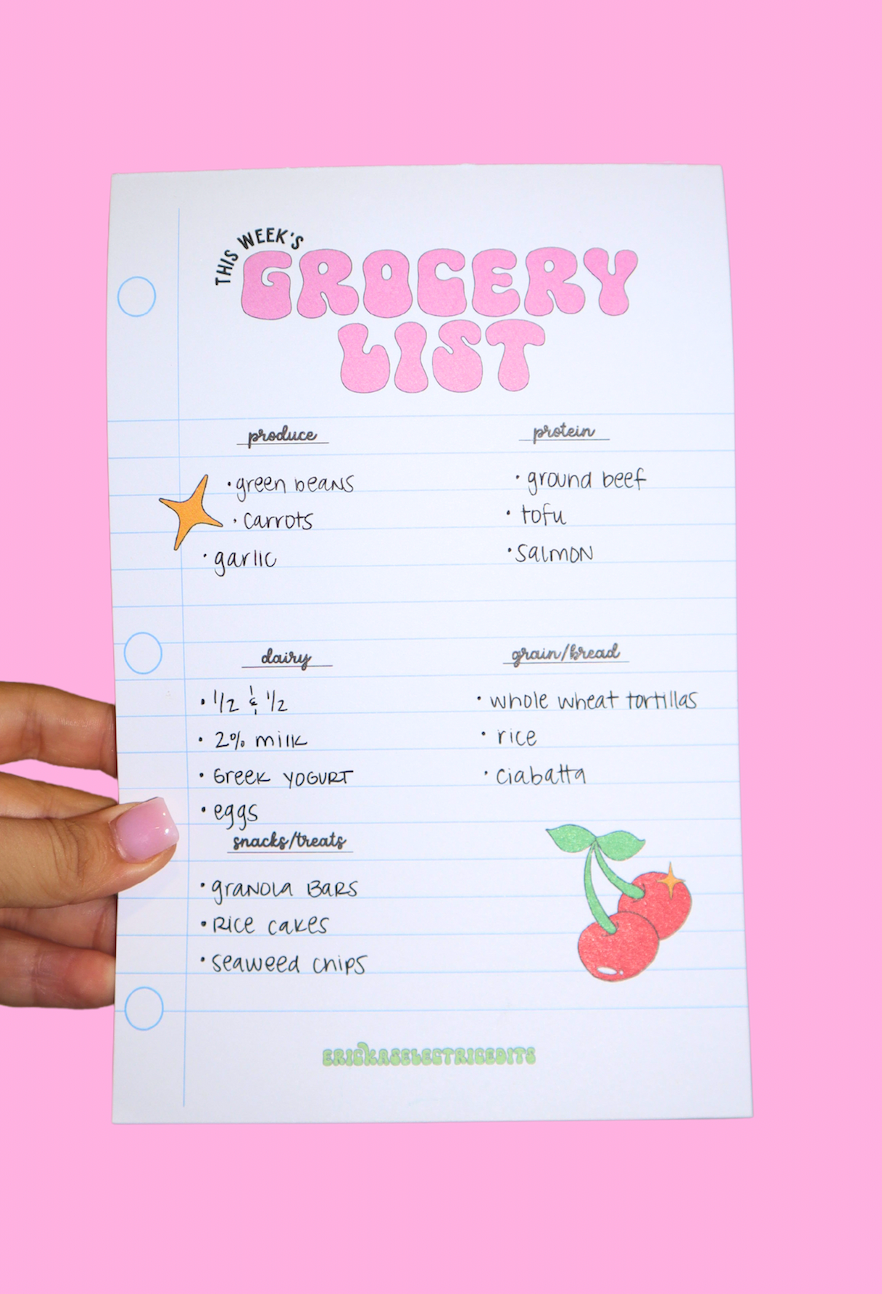 THIS WEEK'S
GROCERY
LIST
produce
• green beans
• carrots
• garlic
protein
• ground beef
• tofu
• salmon
dairy
• 1/2 & 1/2
• 2% milk
• Greek YOGURT
• eggs
grain/bread
• whole wheat tortillas
• rice
• ciabatta
snacks/treats
• granola Bars
• Rice cakes
• seaweed chips
ERICKASELECTRICEDITS